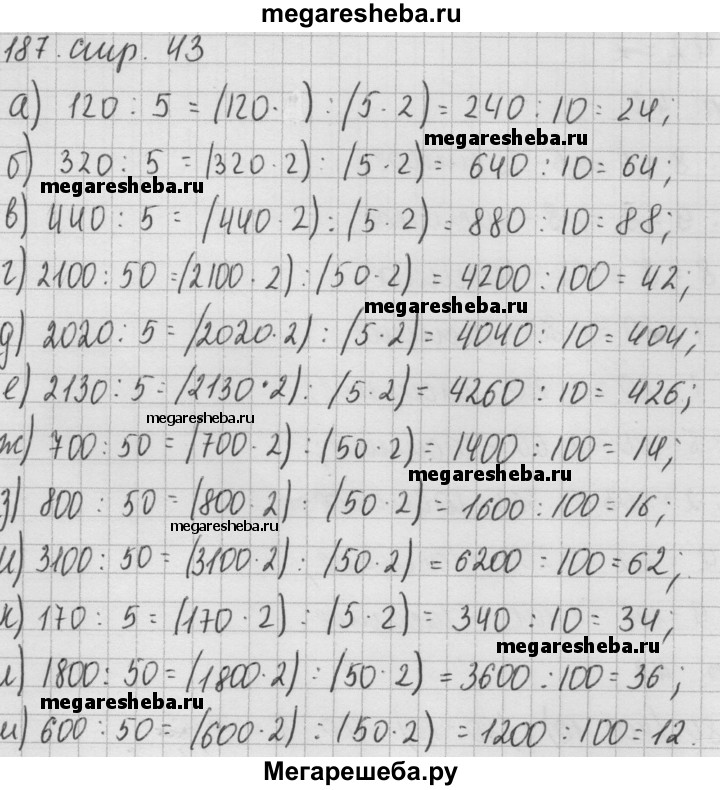 megaresheba.ru
187. стр. 43
а) 120 : 5 = (120 · ) : (5 · 2) = 240 : 10 = 24;
megaresheba.ru
б) 320 : 5 = (320 · 2) : (5 · 2) = 640 : 10 = 64;
megaresheba.ru
в) 440 : 5 = (440 · 2) : (5 · 2) = 880 : 10 = 88;
г) 2100 : 50 = (2100 · 2) : (50 · 2) = 4200 : 100 = 42;
megaresheba.ru
д) 2020 : 5 = (2020 · 2) : (5 · 2) = 4040 : 10 = 404;
е) 2130 : 5 = (2130 · 2) : (5 · 2) = 4260 : 10 = 426;
megaresheba.ru
ж) 700 : 50 = (700 · 2) : (50 · 2) = 1400 : 100 = 14;
megaresheba.ru
з) 800 : 50 = (800 · 2) : (50 · 2) = 1600 : 100 = 16;
megaresheba.ru
и) 3100 : 50 = (3100 · 2) : (50 · 2) = 6200 : 100 = 62;
к) 170 : 5 = (170 · 2) : (5 · 2) = 340 : 10 = 34;
megaresheba.ru
л) 1800 : 50 = (1800 · 2) : (50 · 2) = 3600 : 100 = 36;
megaresheba.ru
м) 600 : 50 = (600 · 2) : (50 · 2) = 1200 : 100 = 12.
Мегарешеба.ру